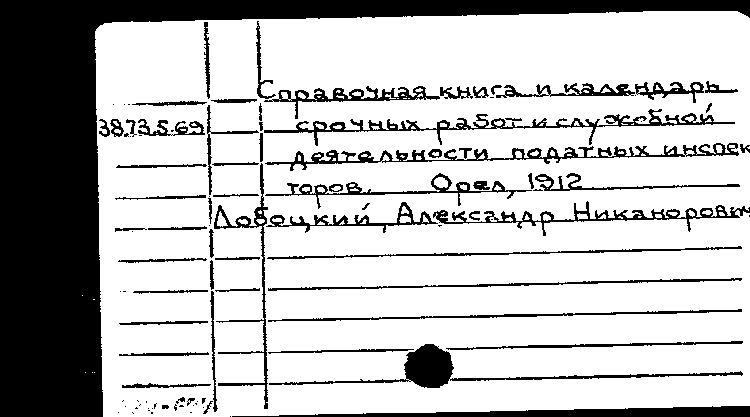 Справочная книга и календарь
3873.5.69 срочных работ и служебной
деятельности податных инспек
торов. Орел, 1912
Лобоцкий, Александр Никанорович